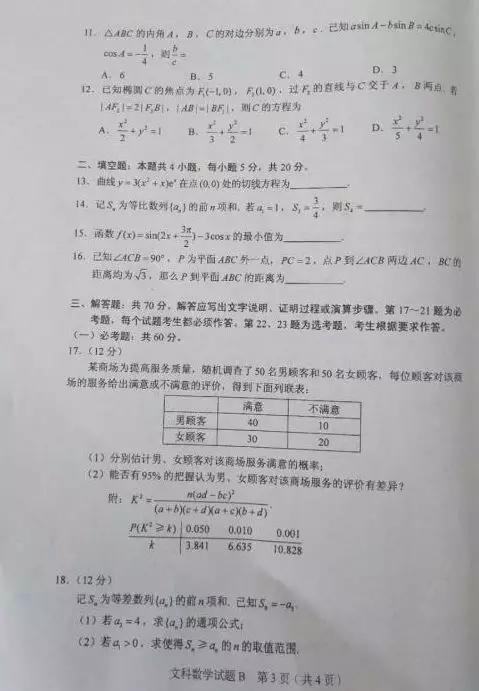 11. △ABC 的内角 A，B，C 的对边分别为 a，b，c. 已知 a sin A − b sin B = 4c sin C，
cos A = −1/4，则 b/c =
A. 6 B. 5 C. 4 D. 3
12. 已知椭圆 C 的焦点为 F₁(−1,0)，F₂(1,0)，过 F₂ 的直线与 C 交于 A，B 两点. 若
|AF₂|=2|F₂B|，|AB|=|BF₁|，则 C 的方程为
A. x²/2 + y² = 1 B. x²/3 + y²/2 = 1 C. x²/4 + y²/3 = 1 D. x²/5 + y²/4 = 1
二、填空题：本题共 4 小题，每小题 5 分，共 20 分。
13. 曲线 y = 3(x² + x)eˣ 在点 (0,0) 处的切线方程为________.
14. 记 Sₙ 为等比数列{aₙ}的前 n 项和. 若 a₁ = 1，S₃ = 3/4，则 S₄ = ________.
15. 函数 f(x) = sin(2x + 3π/2) − 3cos x 的最小值为________.
16. 已知∠ACB = 90°，P 为平面 ABC 外一点，PC = 2，点 P 到∠ACB 两边 AC，BC 的
距离均为 √3，那么 P 到平面 ABC 的距离为________.
三、解答题：共 70 分。解答应写出文字说明、证明过程或演算步骤。第 17~21 题为必
考题，每个试题考生都必须作答。第 22、23 题为选考题，考生根据要求作答。
（一）必考题：共 60 分。
17.（12 分）
某商场为提高服务质量，随机调查了 50 名男顾客和 50 名女顾客，每位顾客对该商
场的服务给出满意或不满意的评价，得到下面列联表：
满意 不满意
男顾客 40 10
女顾客 30 20
（1）分别估计男、女顾客对该商场服务满意的概率；
（2）能否有 95% 的把握认为男、女顾客对该商场服务的评价有差异？
附：K² = n(ad − bc)² / (a+b)(c+d)(a+c)(b+d).
P(K² ≥ k) 0.050 0.010 0.001
k 3.841 6.635 10.828
18.（12 分）
记 Sₙ 为等差数列{aₙ}的前 n 项和. 已知 S₉ = −a₅.
（1）若 a₃ = 4，求{aₙ}的通项公式；
（2）若 a₁ > 0，求使得 Sₙ ≥ aₙ 的 n 的取值范围.
文科数学试题 B 第 3 页（共 4 页）